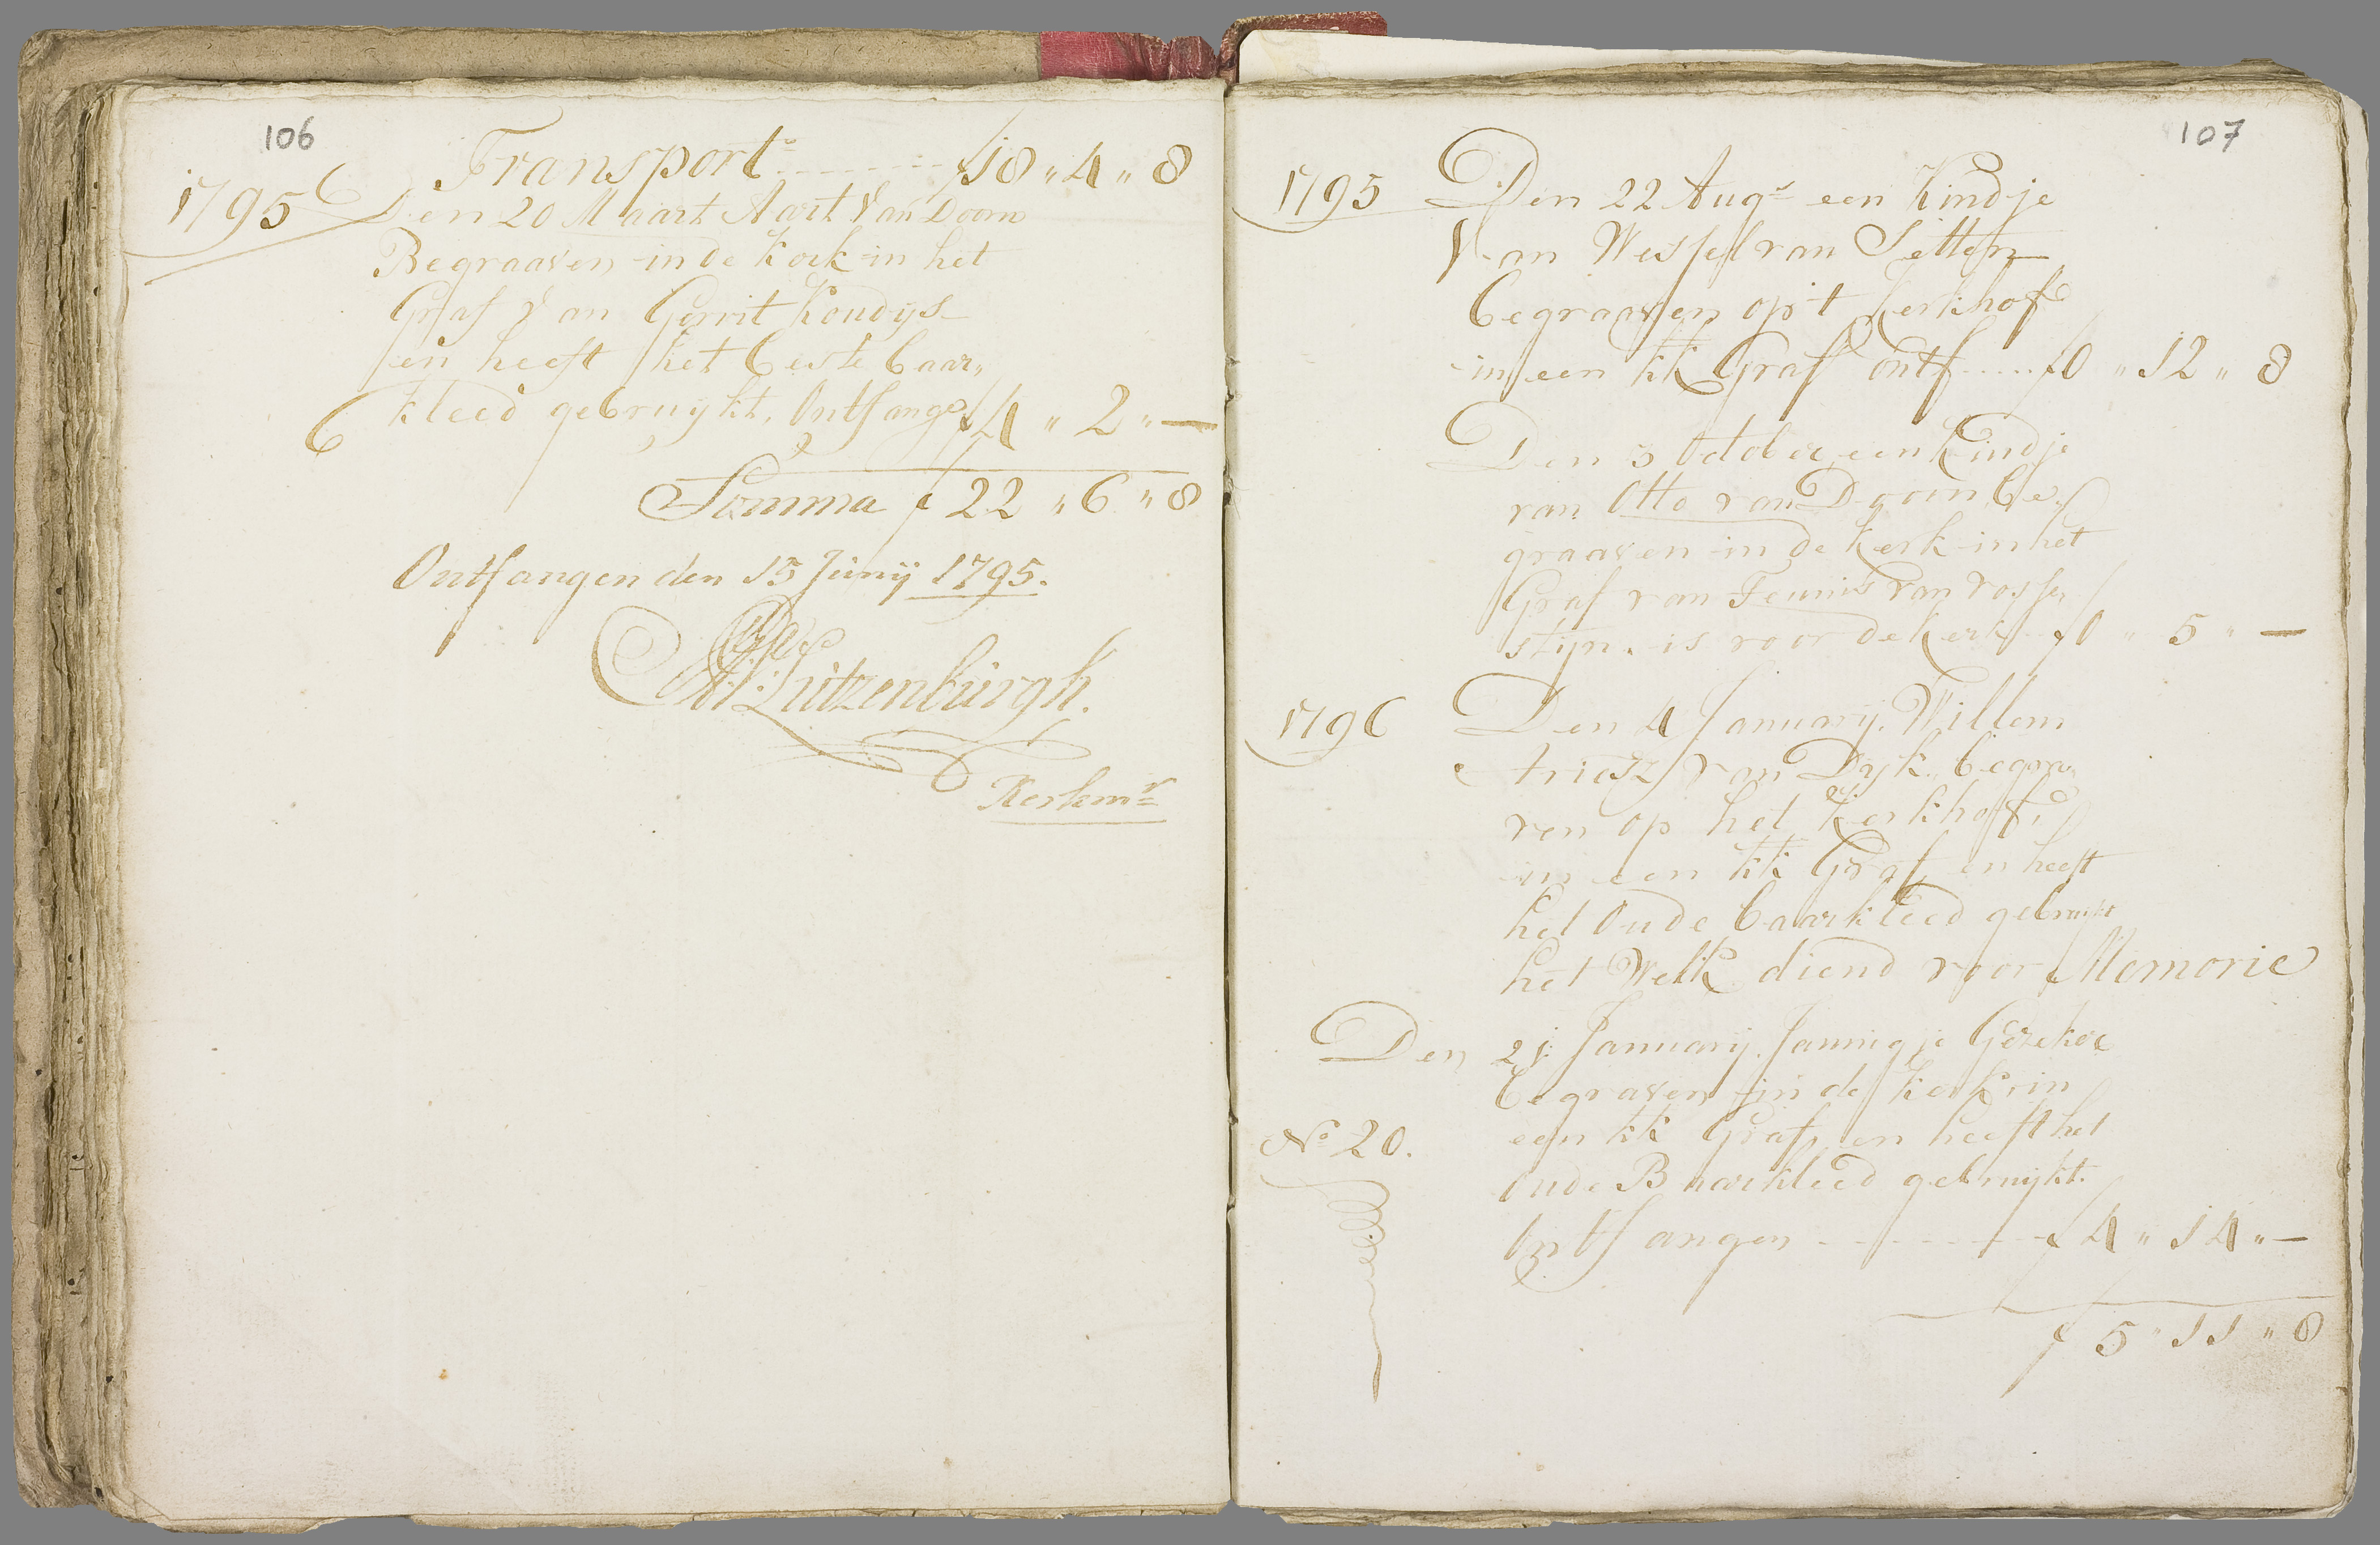 106
Transport f 18 „ 4 „ 8
1795 Den 20 Maart Aart Van Doorn
Begraaven in de Kerk in het
Graf Van Gerrit Koudijs
en heeft het beste baar„
kleed gebruijkt, Ontfange f 4 „ 2 „ —
Somma f 22 „ 6 „ 8
Ontfangen den 15 Junij 1795.
Lutzenburgh.
Kerkmr
107
1795 Den 22 Augs een Kindje
Van Wessel van Setten
begraaven op 't Kerkhof
in een kk Graf ontf f 0 „ 12 „ 8
Den 5 October een Kindje
van Otto van Doorn be
graaven in de Kerk in het
Graf van Teunis van Vosse
stijn. is voor de Kerk f 0 „ 5 „ —
1796 Den 4 January. Willem
van Dyk. begra
ven op het Kerkhof
in een kk Graf en heeft
het Oude baarkleed gebruijkt
het Welk diend voor Memorie
Den 21 January. Jannigje
begraven in de Kerk in
No 20. een kk Graf, en heeft het
Oude Baarkleed gebruijkt.
Ontfangen f 4 „ 14 „ —
f 5 „ 11 „ 8